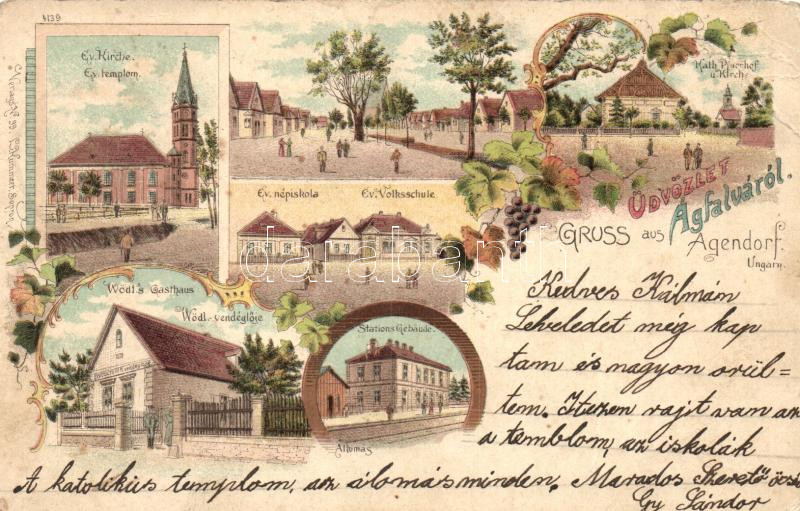 4139
Ev. Kirche.
Ev. templom.
Kath. Pfarrhof
u. Kirche
ÜDVÖZLET
Ágfalváról.
GRUSS aus Agendorf.
Ungarn.
Ev. népiskola Ev. Volksschule.
darabanth.com
Wödl's Gasthaus
Wödl-vendéglője
Stations Gebäude.
Állomás
Kedves Kálmán
Leveledet még kap
tam és nagyon örül=
tem. Itezen rajt van az
a templom, az iskolák
A katolikus templom, az álomásminden. Marados Szerető öcsé
Gy Sándor